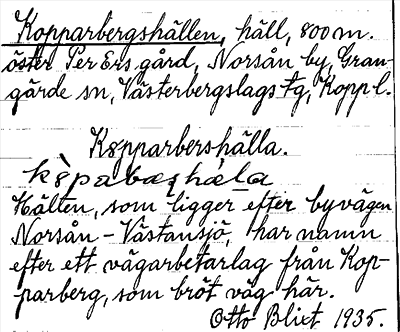 Kopparbergshällen, häll, 800 m.
öster Per Ers gård, Norsån by, Gran-
gärde sn, Västerbergslags tg, Koppl.
Kopparbershälla.
Hällen, som ligger efter byvägen
Norsån - Västansjö, har namn
efter ett vägarbetarlag från Kop-
parberg, som bröt väg här.
Otto Blixt 1935.